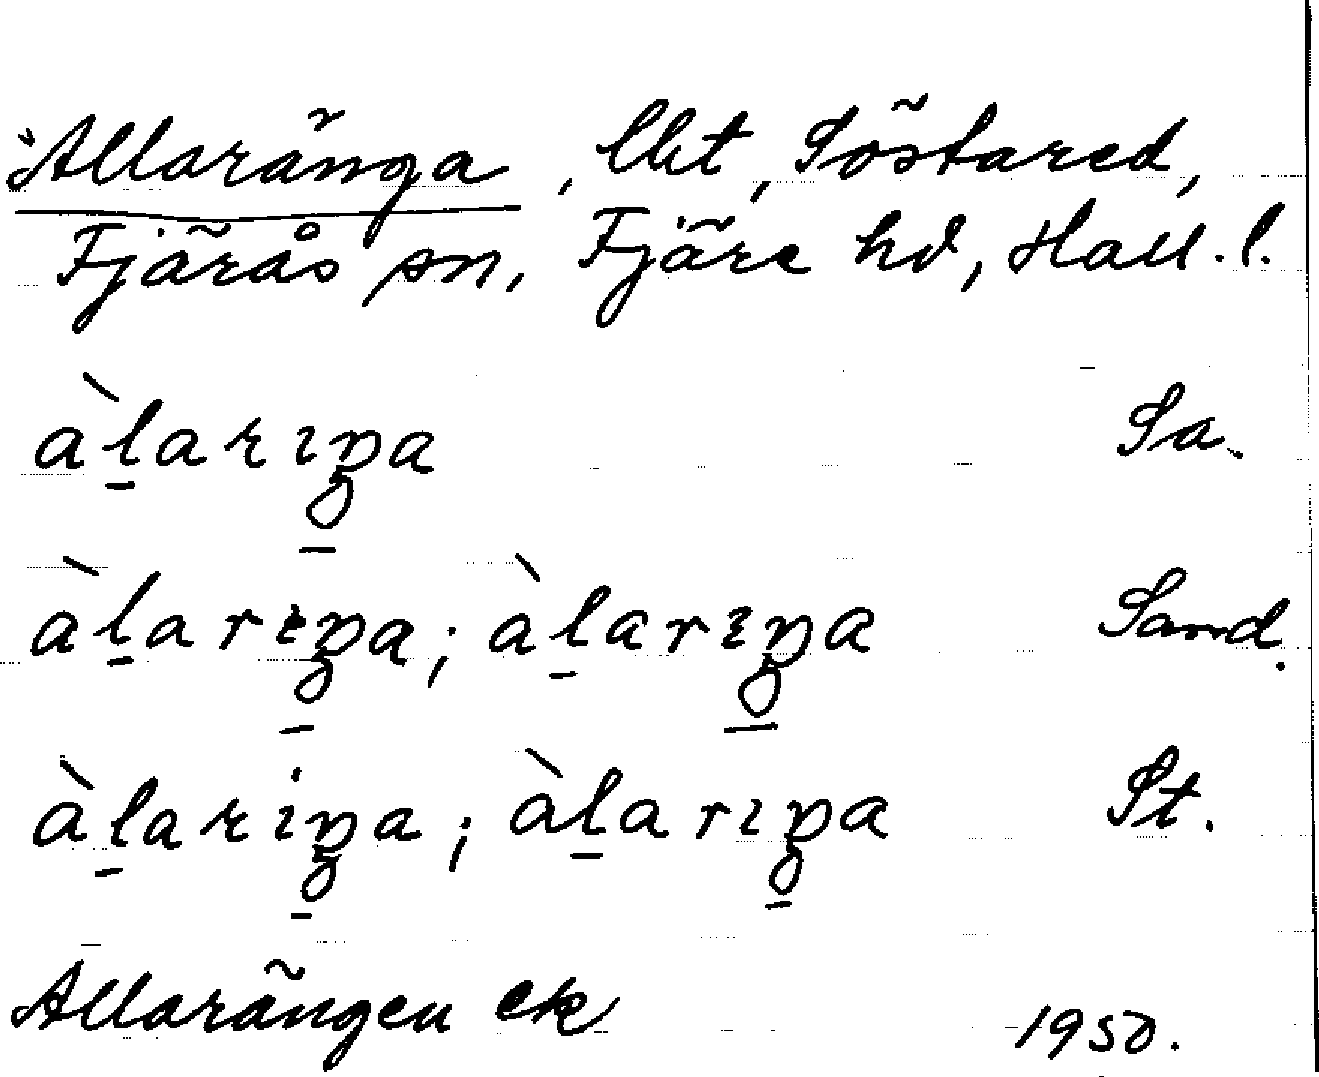 Allaränga, lht, Söstared,
Fjärås sn, Fjäre hd, Hall. l.
àlarıŋa Sa.
àlarıŋa; àlarıŋa Sand.
àlariŋa; àlarıŋa St.
Allarängen ek 1950.